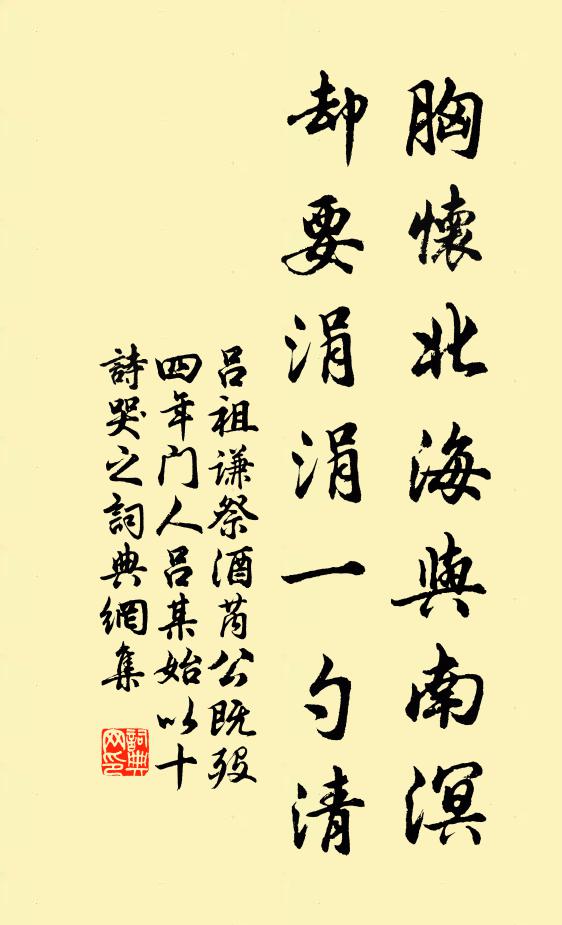 胸懷北海與南溟
却要涓涓一勺清
吕祖谦祭酒芮公既殁
四年门人吕某始以十
詩哭之詞典網集
詞典
网印